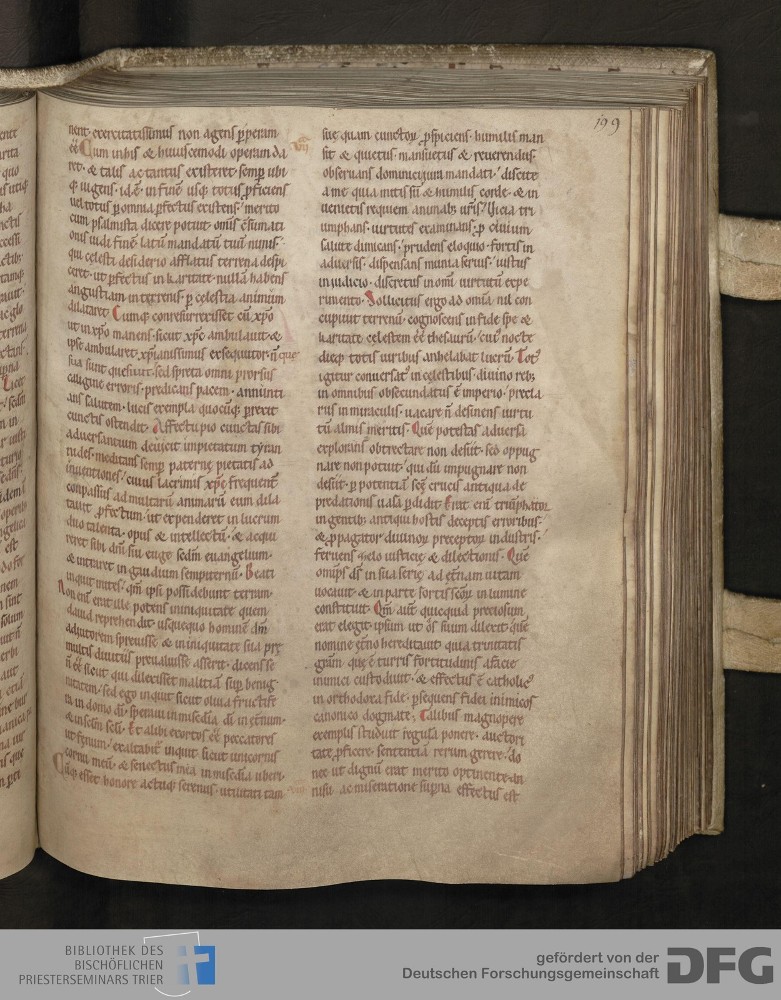 199
nent exercitatissimus non agens ꝑperam
eē Cum in his & huiuscemodi operam da
ret. & talis ac tantus existeret semꝑ ubi
uel totus ꝑ omnia ꝑfectus existens merito
cum psalmista dicere potuit omīs ē̄sumati
onis uidi finē. latū mandatū tuū nimis.
qui celesti desiderio afflatus terrena despi
ceret. ut ꝑfectus in karitate nullā habens
angustiam in terrenis ꝑ celestia animum
dilataret. Cumq; conresurrexisset cū xp̄o
ut in xp̄o manens sicut xp̄c ambulauit &
ipse ambularet. xp̄ianissimus exsequutor n̄ que
sua sunt quesiuit. sed spreta omni prorsus
caligine erroris. predicans pacem. annunti
ans salutem. lucis exempla quocūq; ꝑrexit
cunctis ostendit. Affectu pio cunctas sibi
aduersantium deuicit impietatum tyran
nides. meditans semꝑ paternę pietatis ad
inuentiones. cuius lacrimis xp̄c frequent̄
conpassus ad multarū animarū eum dila
tauit ꝓfectum. ut expenderet in lucrum
duo talenta. opus & intellectū. & acqui
reret sibi dn̄i sui euge sedm̄ euangelium.
& intraret in gaudium sempiternū. Beati
inquit mites. qm̄ ipsi possidebunt terram.
Non enī erat ille potens in iniquitate quem
dauid reprehendit. usquequo hominē dm̄
adiutorem spreuisse & in iniquitate sua pre
multis diuitiis preualuisse asserit. dicens se
n̄ eē sicut qui dilexisset malitiā suꝑ benig
nitatem. sed ego inquit sicut oliua fructife
ra in domo di. speraui in misc̄dia di in et̄num.
& in sclm̄ scli. Et alibi exortos eē peccatores
ut fenum. exaltabit̄ inquit sicut unicornis
cornu meū. & senectus mea in misc̄dia uberi.
Cūq; esset honore actuq; serenus. utilitati tam
VII
suę quam cunctoꝝ ꝓspiciens. humilis man
sit & quietus. mansuetus & reuerendus.
obseruans dominicum mandati. discite
a me quia mitis sū & humilis corde. & in
uenietis requiem animab; uris. Uicia tri
umphans. uirtutes examinans. ꝑ ciuium
salute dimicans. prudens eloquio. fortis in
aduersis. dispensans munia serius. iustus
in iudicio. discretus in omī uirtutū expe
rimento. Sollicitus ergo ad omīa. nil con
cupiuit terrenū. cognoscens in fide spe &
karitate celestem eē thesaurū. cui nocte
dieq; totis uiribus anhelabat lucrū. Totus
igitur conuersatus in celestibus. diuino reb;
in omnibus obsecundatus ē imperio. precla
rus in miraculis. uacare n̄ desinens uirtu
tū almis meritis. Quē potestas aduersa
explorans obtrectare non desiit. sed oppug
nare non potuit. qui dū impugnare non
desiit. ꝑ potentiā scę crucis antiqua de
predationis uasa ꝑdidit. Erat enī triūphator
in gentib; antiqui hostis deceptis erroribus.
& ꝓpagator diuinoꝝ preceptoꝝ industris.
feruens zelo iusticię & dilectionis. Quē
omīps ds̄ in sua serie ad et̄nam uitam
uocauit & in parte sortis scōꝝ in lumine
constituit. Qm̄ aut̄ quicquid preciosum
erat elegit. ipsum ut os suum dilexit. quē
nomine et̄no hereditauit. quia trinitatis
gn̄um. que ē turris fortitudinis a facie
inimici custodiuit. & effectus ē catholicus
in orthodoxa fide. ꝑsequens fidei inimicos
canonico dogmate. Talibus magnopere
exemplis studuit regula ponere. auctori
tate ꝓficere. sententiā rerum gerere. do
nec ut dignū erat merito optinente. dn̄i
nisu ac miseratione suꝑna effectus est
BIBLIOTHEK DES
BISCHÖFLICHEN
PRIESTERSEMINARS TRIER
gefördert von der
Deutschen Forschungsgemeinschaft
DFG